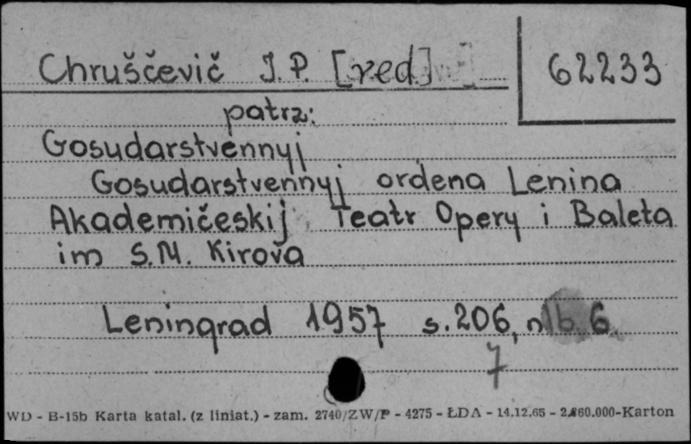 Chruščevič J.P. [red] 62233
patrz:
Gosudarstvennyj
Gosudarstvennyj ordena Lenina
Akademičeskij Teatr Opery i Baleta
im S.M. Kirova
Leningrad 1957 s.206, nlb 6
7
WD - B-15b Karta katal. (z liniat.) - zam. 2740/ZW/P - 4275 - ŁDA - 14.12.65 - 2.860.000-Karton